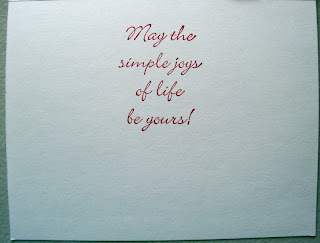 May the
simple joys
of life
be yours!